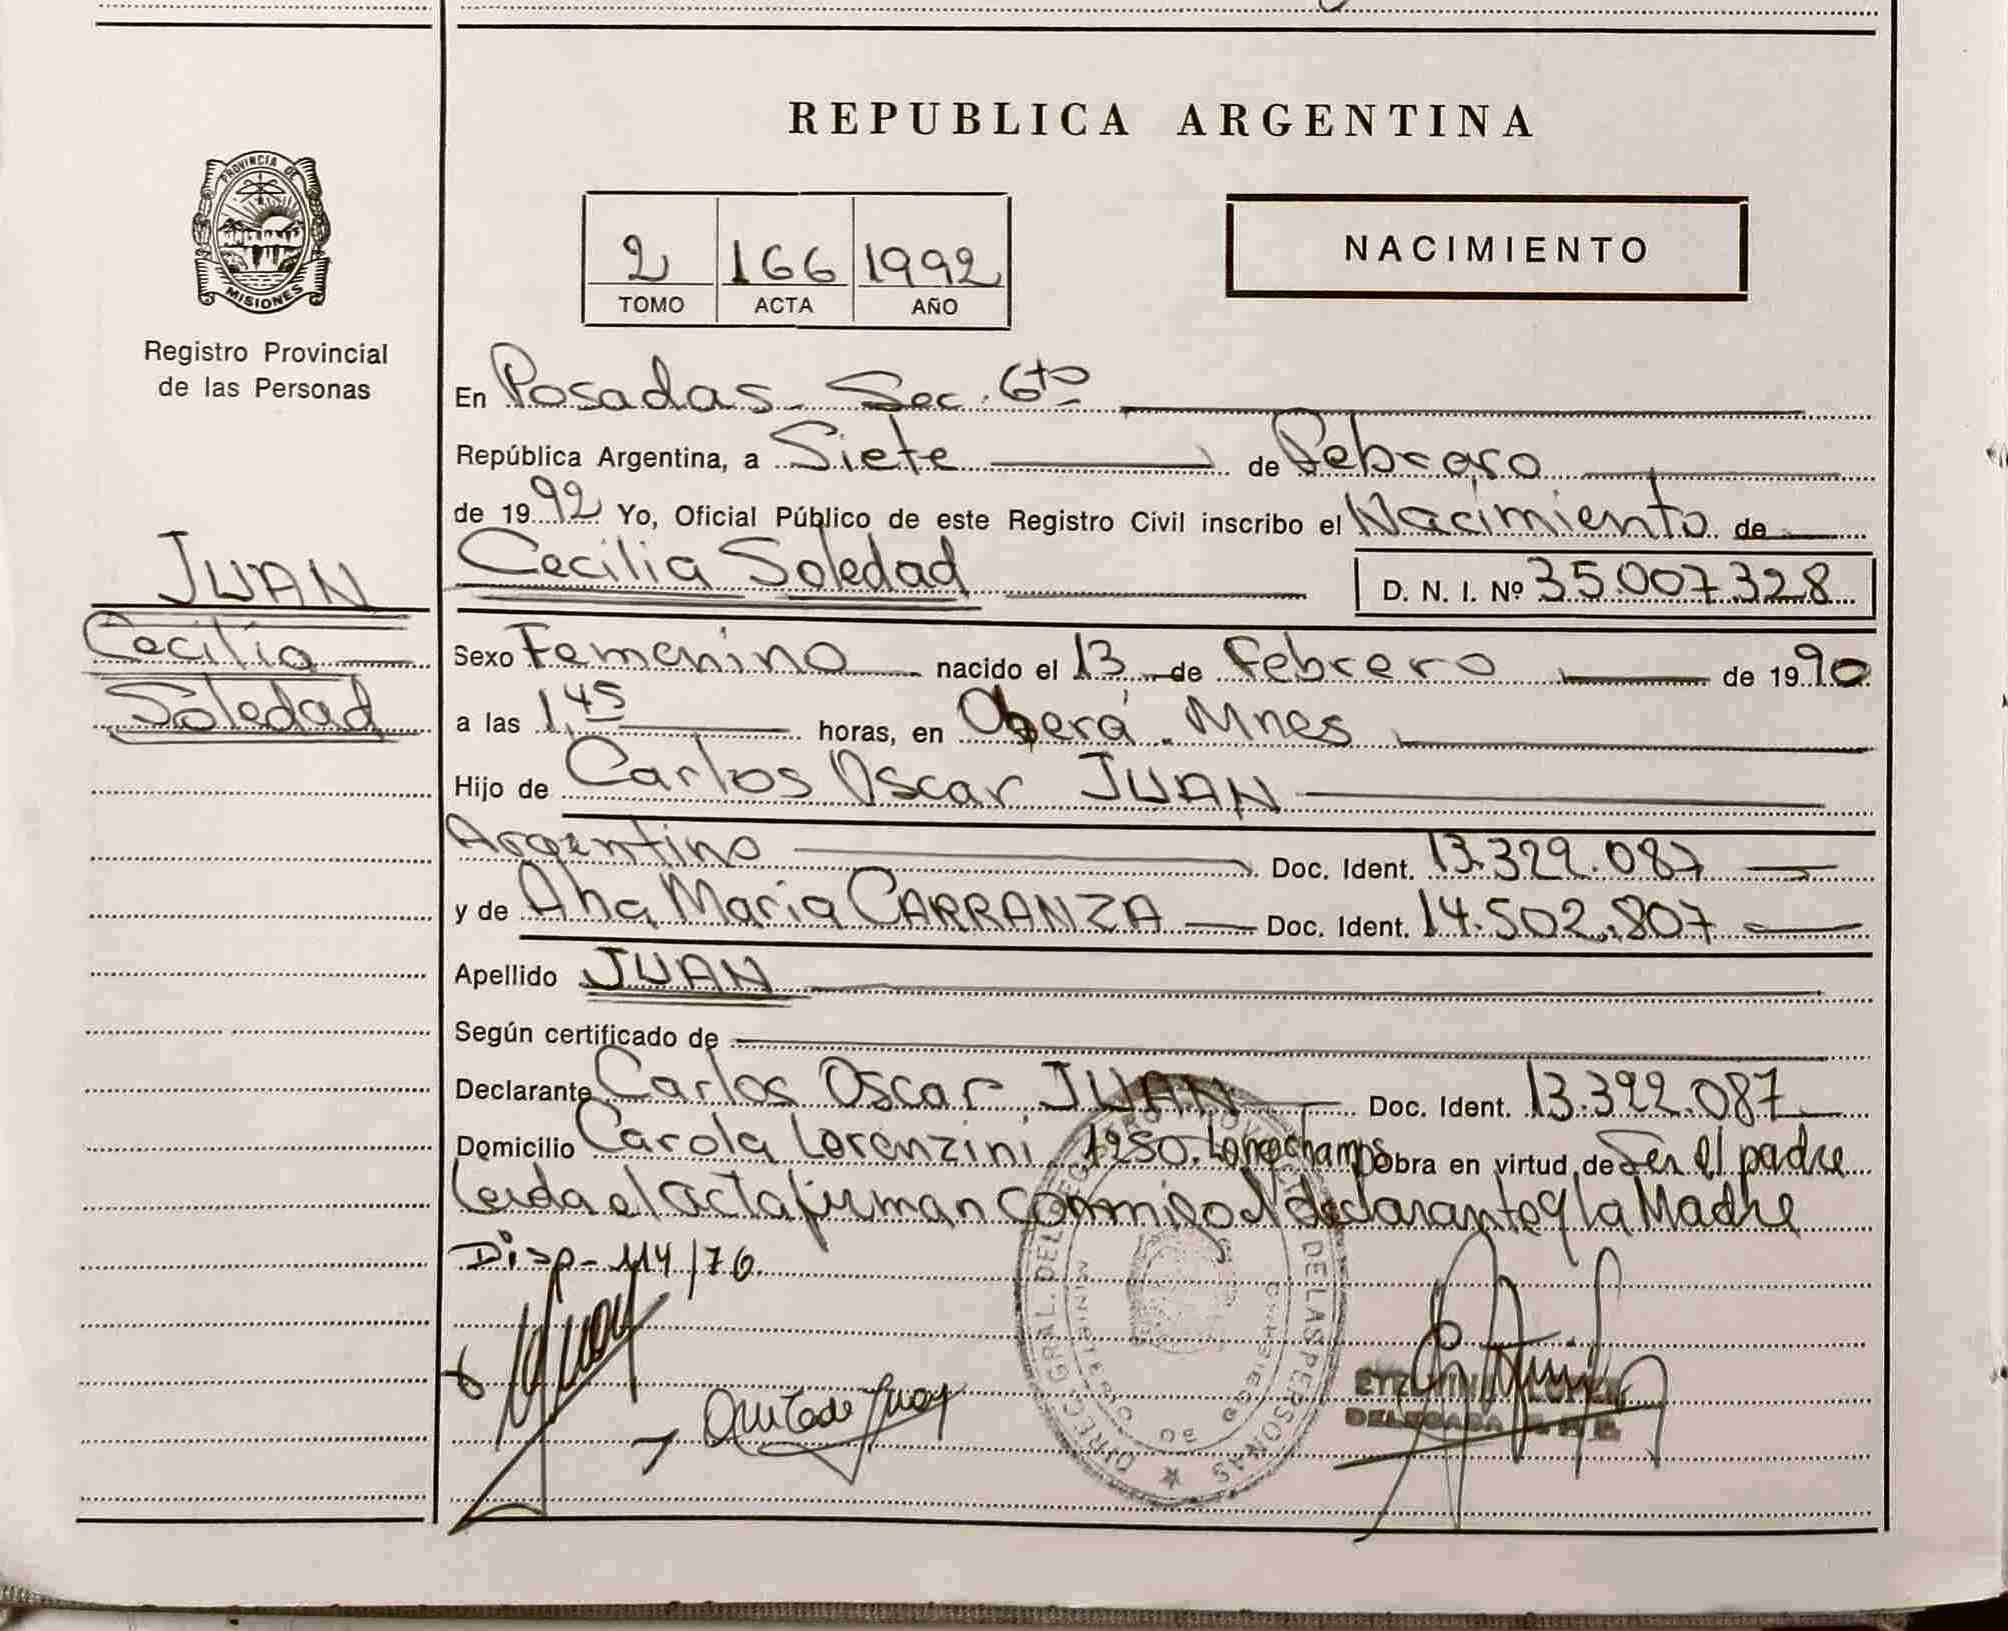 REPUBLICA ARGENTINA
PROVINCIA DE
MISIONES
Registro Provincial
de las Personas
2 166 1992
TOMO ACTA AÑO
NACIMIENTO
En Posadas - Sec. 6to
República Argentina, a Siete de Febrero
de 1992 Yo, Oficial Público de este Registro Civil inscribo el Nacimiento de
Cecilia Soledad D. N. I. Nº 35.007.328
JUAN
Cecilia
Soledad
Sexo Femenino nacido el 13 de Febrero de 1990
a las 1,45 horas, en Oberá. Mnes
Hijo de Carlos Oscar JUAN
Argentino Doc. Ident. 13.329.087
y de Ana Maria CARRANZA Doc. Ident. 14.502.807
Apellido JUAN
Según certificado de
Declarante Carlos Oscar JUAN Doc. Ident. 13.322.087
Domicilio Carola Lorenzini 1250. Longchamps Obra en virtud de Ser el padre
Leida el acta firman conmigo el declarante y la Madre
Disp - 114/76.
DELEGADA
DE LAS PERSONAS